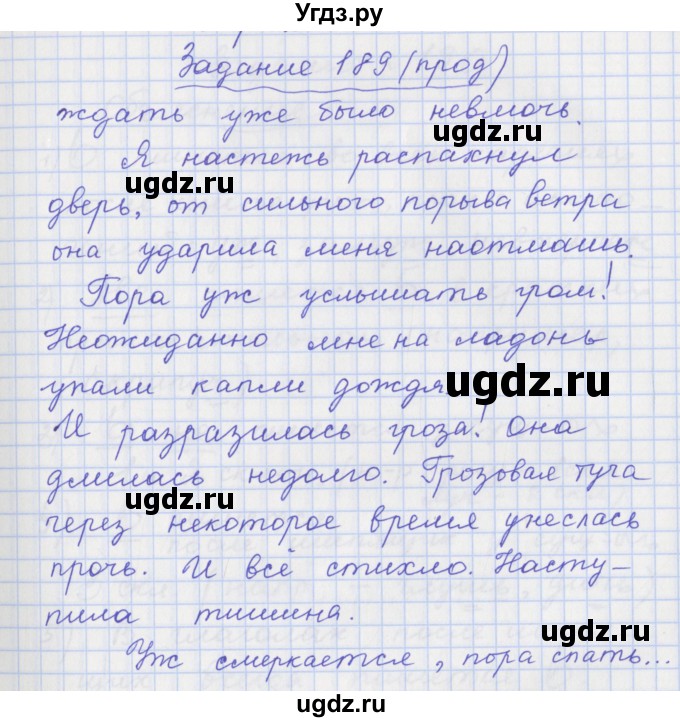 Угдз.ру
Задание 189 (прод)
ждать уже было невмочь.
Я настежь распахнул
дверь, от сильного порыва ветра
она ударила меня наотмашь.
Пора уж услышать гром!
Неожиданно мне на ладонь
упали капли дождя
И разразилась гроза! Она
длилась недолго. Грозовая туча
через некоторое время унеслась
прочь. И всё стихло. Насту-
пила тишина.
Уж смеркается, пора спать...
ugdz.ru
ugdz.ru
ugdz.ru
ugdz.ru
ugdz.ru
ugdz.ru
ugdz.ru